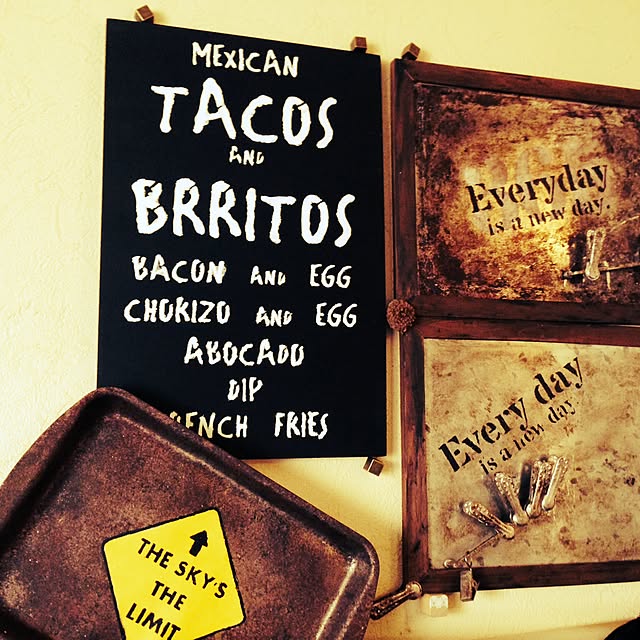 MEXICAN
TACOS
AND
BRRITOS
BACON AND EGG
CHORIZO AND EGG
ABOCADO
DIP
ENCH FRIES
Everyday
is a new day.
Every day
is a new day.
THE SKY'S
THE
LIMIT